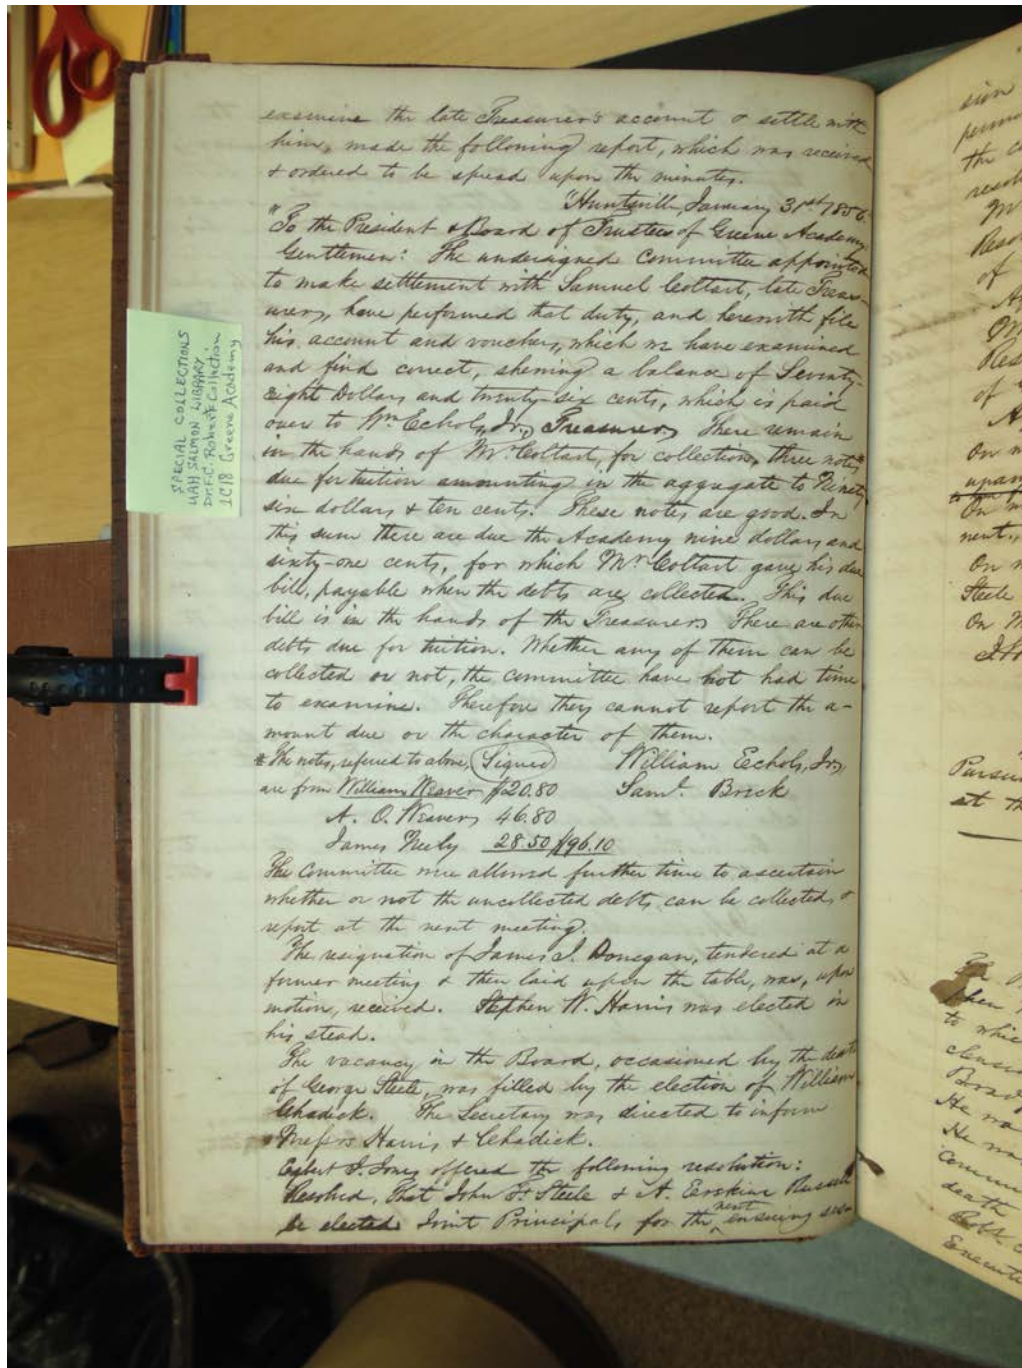 examine the late Treasurer's account & settle with
him, made the following report, which was received
& ordered to be spread upon the minutes.
"Huntsville, January 31st 1856.
"To the President & Board of Trustees of Greene Academy
Gentlemen: The undersigned Committee appointed
to make settlement with Samuel Coltart, late Treas-
urer, have performed that duty, and herewith file
his account and vouchers, which we have examined
and find correct, shewing a balance of Seventy-
eight Dollars and twenty-six cents, which is paid
over to Wm Echols, Jr., Treasurer. There remain
in the hands of Mr Coltart, for collection, three notes*
due for tuition amounting in the aggregate to Ninety
six dollars & ten cents. These notes are good. In
this sum there are due the Academy nine dollars and
sixty-one cents, for which Mr Coltart gave his due
bill, payable when the debts are collected. This due
bill is in the hands of the Treasurer. There are other
debts due for tuition. Whether any of them can be
collected or not, the committee have not had time
to examine. Therefore they cannot report the a-
mount due or the character of them.
* The notes, referred to above, (Signed) William Echols, Jr.,
are from William Weaver $20.80 Saml. Brick
A. O. Weaver 46.80
James Neely 28.50 $96.10
The Committee were allowed further time to ascertain
whether or not the uncollected debts can be collected, &
report at the next meeting.
The resignation of James J. Donegan, tendered at a
former meeting & then laid upon the table, was, upon
motion, received. Stephen W. Harris was elected in
his stead.
The vacancy in the Board, occasioned by the death
of George Steele, was filled by the election of William
Chadick. The Secretary was directed to inform
Messrs Harris & Chadick.
Egbert J. Jones offered the following resolution:
Resolved, That John F. Steele & A. Erskine Russell
be elected Joint Principals for the next ensuing ses-
SPECIAL COLLECTIONS
UAH SALMON LIBRARY
Dr. F.C. Roberts Collection
1C18 Greene Academy
sion
the
of
of
On m
nent.
On m
Steele
On M
at th
to which
He was
He was
death